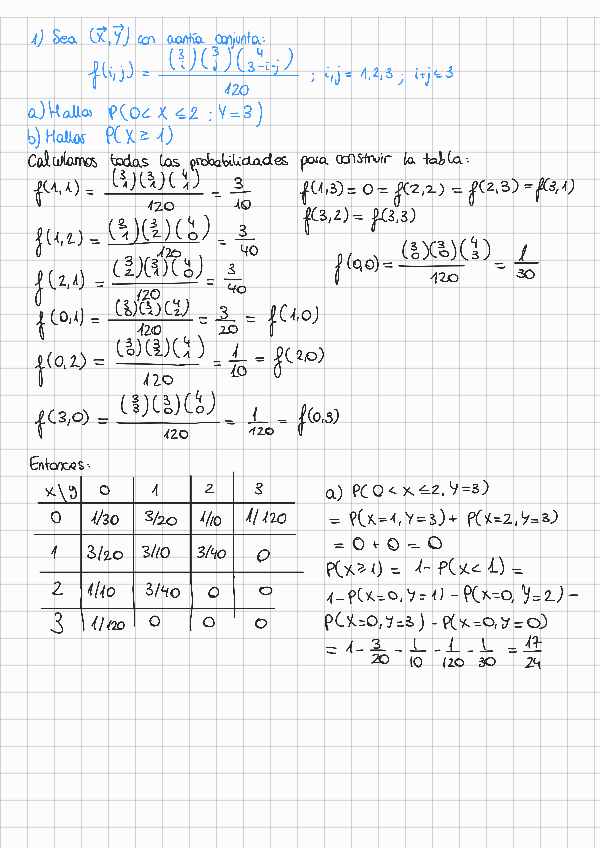 1) Sea (X⃗,Y⃗) con cuantía conjunta:
f(i,j) = (3 i)(3 j)(4 3-i-j) / 120 ; i,j = 1,2,3 ; i+j ≤ 3
a) Hallar P(0 < X ≤ 2 ; Y = 3)
b) Hallar P(X ≥ 1)
Calculamos todas las probabilidades para construir la tabla:
f(1,1) = (3 1)(3 1)(4 1) / 120 = 3/10
f(1,2) = (3 1)(3 2)(4 0) / 120 = 3/40
f(2,1) = (3 2)(3 1)(4 0) / 120 = 3/40
f(0,1) = (3 0)(3 1)(4 2) / 120 = 3/20 = f(1,0)
f(0,2) = (3 0)(3 2)(4 1) / 120 = 1/10 = f(2,0)
f(3,0) = (3 3)(3 0)(4 0) / 120 = 1/120 = f(0,3)
f(1,3) = 0 = f(2,2) = f(2,3) = f(3,1)
f(3,2) = f(3,3)
f(0,0) = (3 0)(3 0)(4 3) / 120 = 1/30
Entonces:
x\y 0 1 2 3
0 1/30 3/20 1/10 1/120
1 3/20 3/10 3/40 0
2 1/10 3/40 0 0
3 1/120 0 0 0
a) P(0 < X ≤ 2, Y = 3)
= P(X=1, Y=3) + P(X=2, Y=3)
= 0 + 0 = 0
P(X ≥ 1) = 1 - P(X < 1) =
1 - P(X=0, Y=1) - P(X=0, Y=2) -
P(X=0, Y=3) - P(X=0, Y=0)
= 1 - 3/20 - 1/10 - 1/120 - 1/30 = 17/24